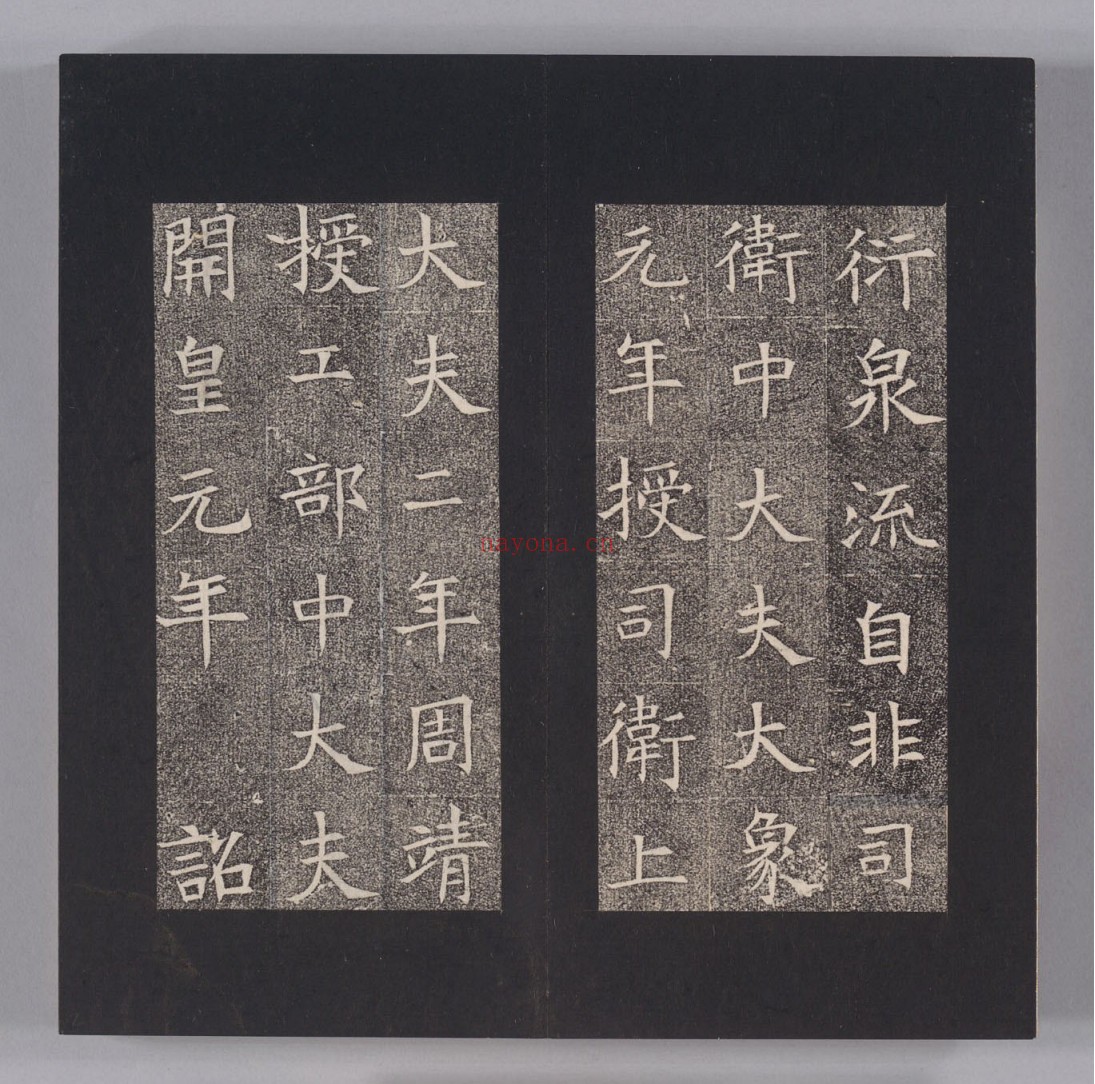 衍泉流自非司
衛中大夫大象
元年授司衛上
大夫二年周靖
授工部中大夫
開皇元年 詔
nayona.cn